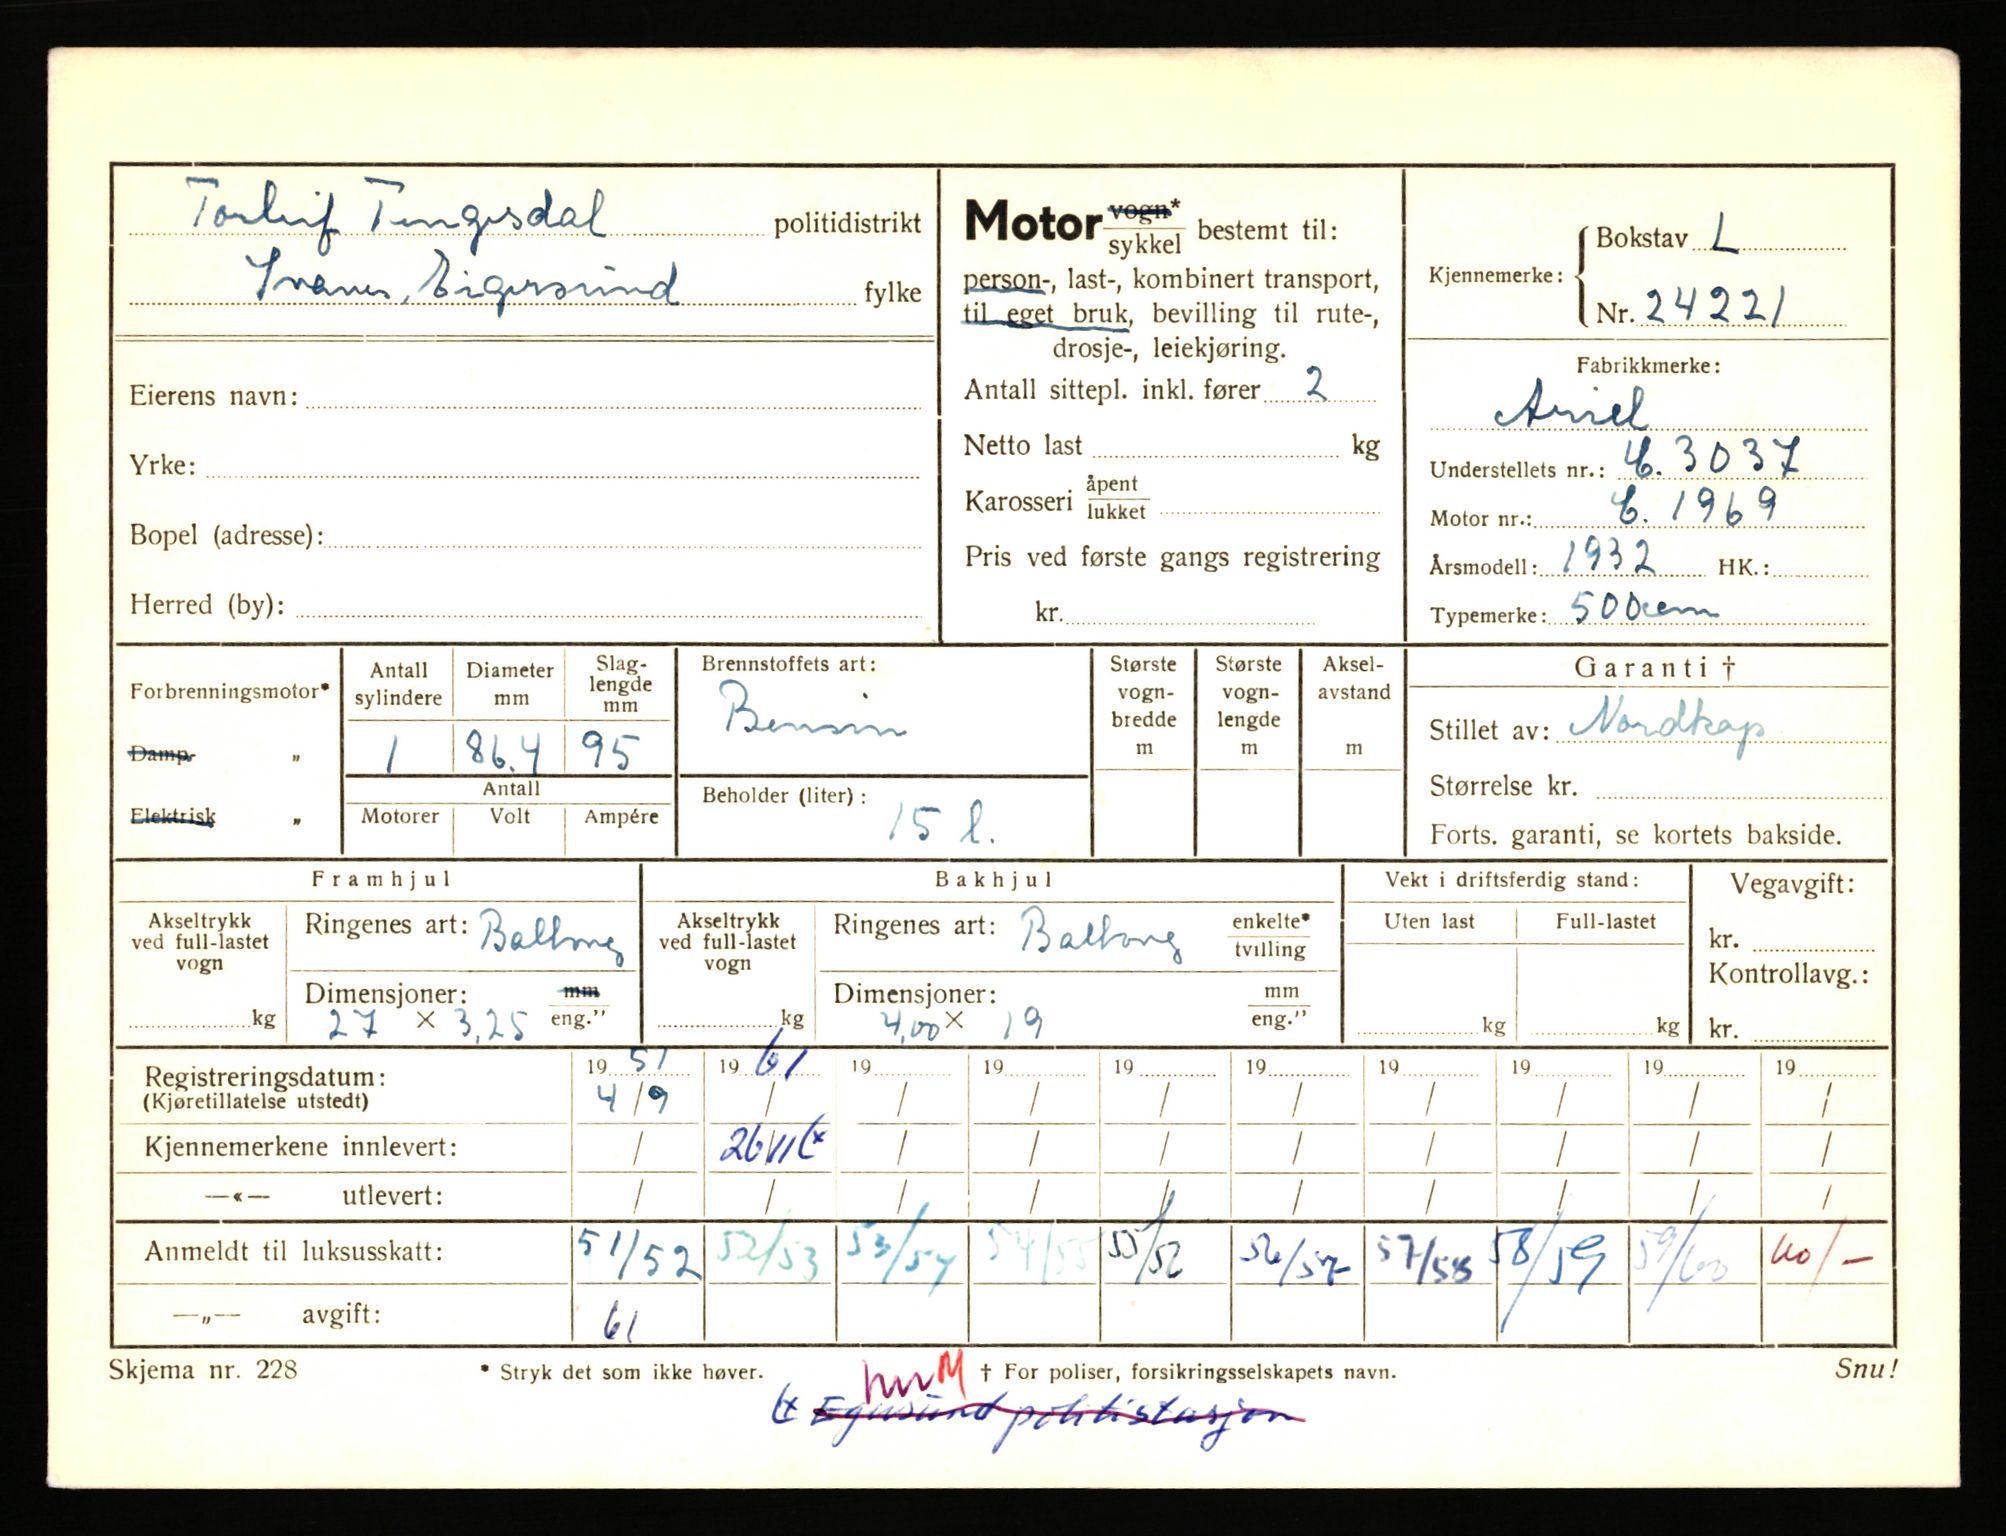 Torleif Tengesdal politidistrikt
Svanes, Eigersund fylke
Eierens navn:
Yrke:
Bopel (adresse):
Herred (by):
Motor vogn* / sykkel bestemt til:
person-, last-, kombinert transport,
til eget bruk, bevilling til rute-,
drosje-, leiekjøring.
Antall sittepl. inkl. fører 2
Netto last kg
Karosseri åpent / lukket
Pris ved første gangs registrering
kr.
Kjennemerke: Bokstav L
Nr. 24221
Fabrikkmerke:
Ariel
Understellets nr.: C. 3037
Motor nr.: C. 1969
Årsmodell: 1932 HK.:
Typemerke: 500ccm
Forbrenningsmotor*
Damp- „
Elektrisk „
Antall sylindere
1
Diameter mm
86.4
Slag-lengde mm
95
Antall
Motorer Volt Ampére
Brennstoffets art:
Bensin
Beholder (liter):
15 l.
Største vogn-bredde m
Største vogn-lengde m
Aksel-avstand m
Garanti †
Stillet av: Nordkap
Størrelse kr.
Forts. garanti, se kortets bakside.
Framhjul
Akseltrykk ved full-lastet vogn
kg
Ringenes art: Ballong
Dimensjoner: mm / eng."
27 × 3,25
Bakhjul
Akseltrykk ved full-lastet vogn
kg
Ringenes art: Ballong enkelte* / tvilling
Dimensjoner: mm / eng."
4,00 × 19
Vekt i driftsferdig stand:
Uten last Full-lastet
kg kg
Vegavgift:
kr.
Kontrollavg.:
kr.
Registreringsdatum: 19 51 19 61 19 19 19 19 19 19 19 19
(Kjøretillatelse utstedt) 4/9 / / / / / / / / /
Kjennemerkene innlevert: / 26/11 (* / / / / / / / /
—«— utlevert: / / / / / / / / / /
Anmeldt til luksusskatt: 51/52 52/53 53/54 54/55 55/56 56/57 57/58 58/59 59/60 60/-
—„— avgift: 61
Skjema nr. 228 * Stryk det som ikke høver. † For poliser, forsikringsselskapets navn. Snu!
(* Egersund politistasjon